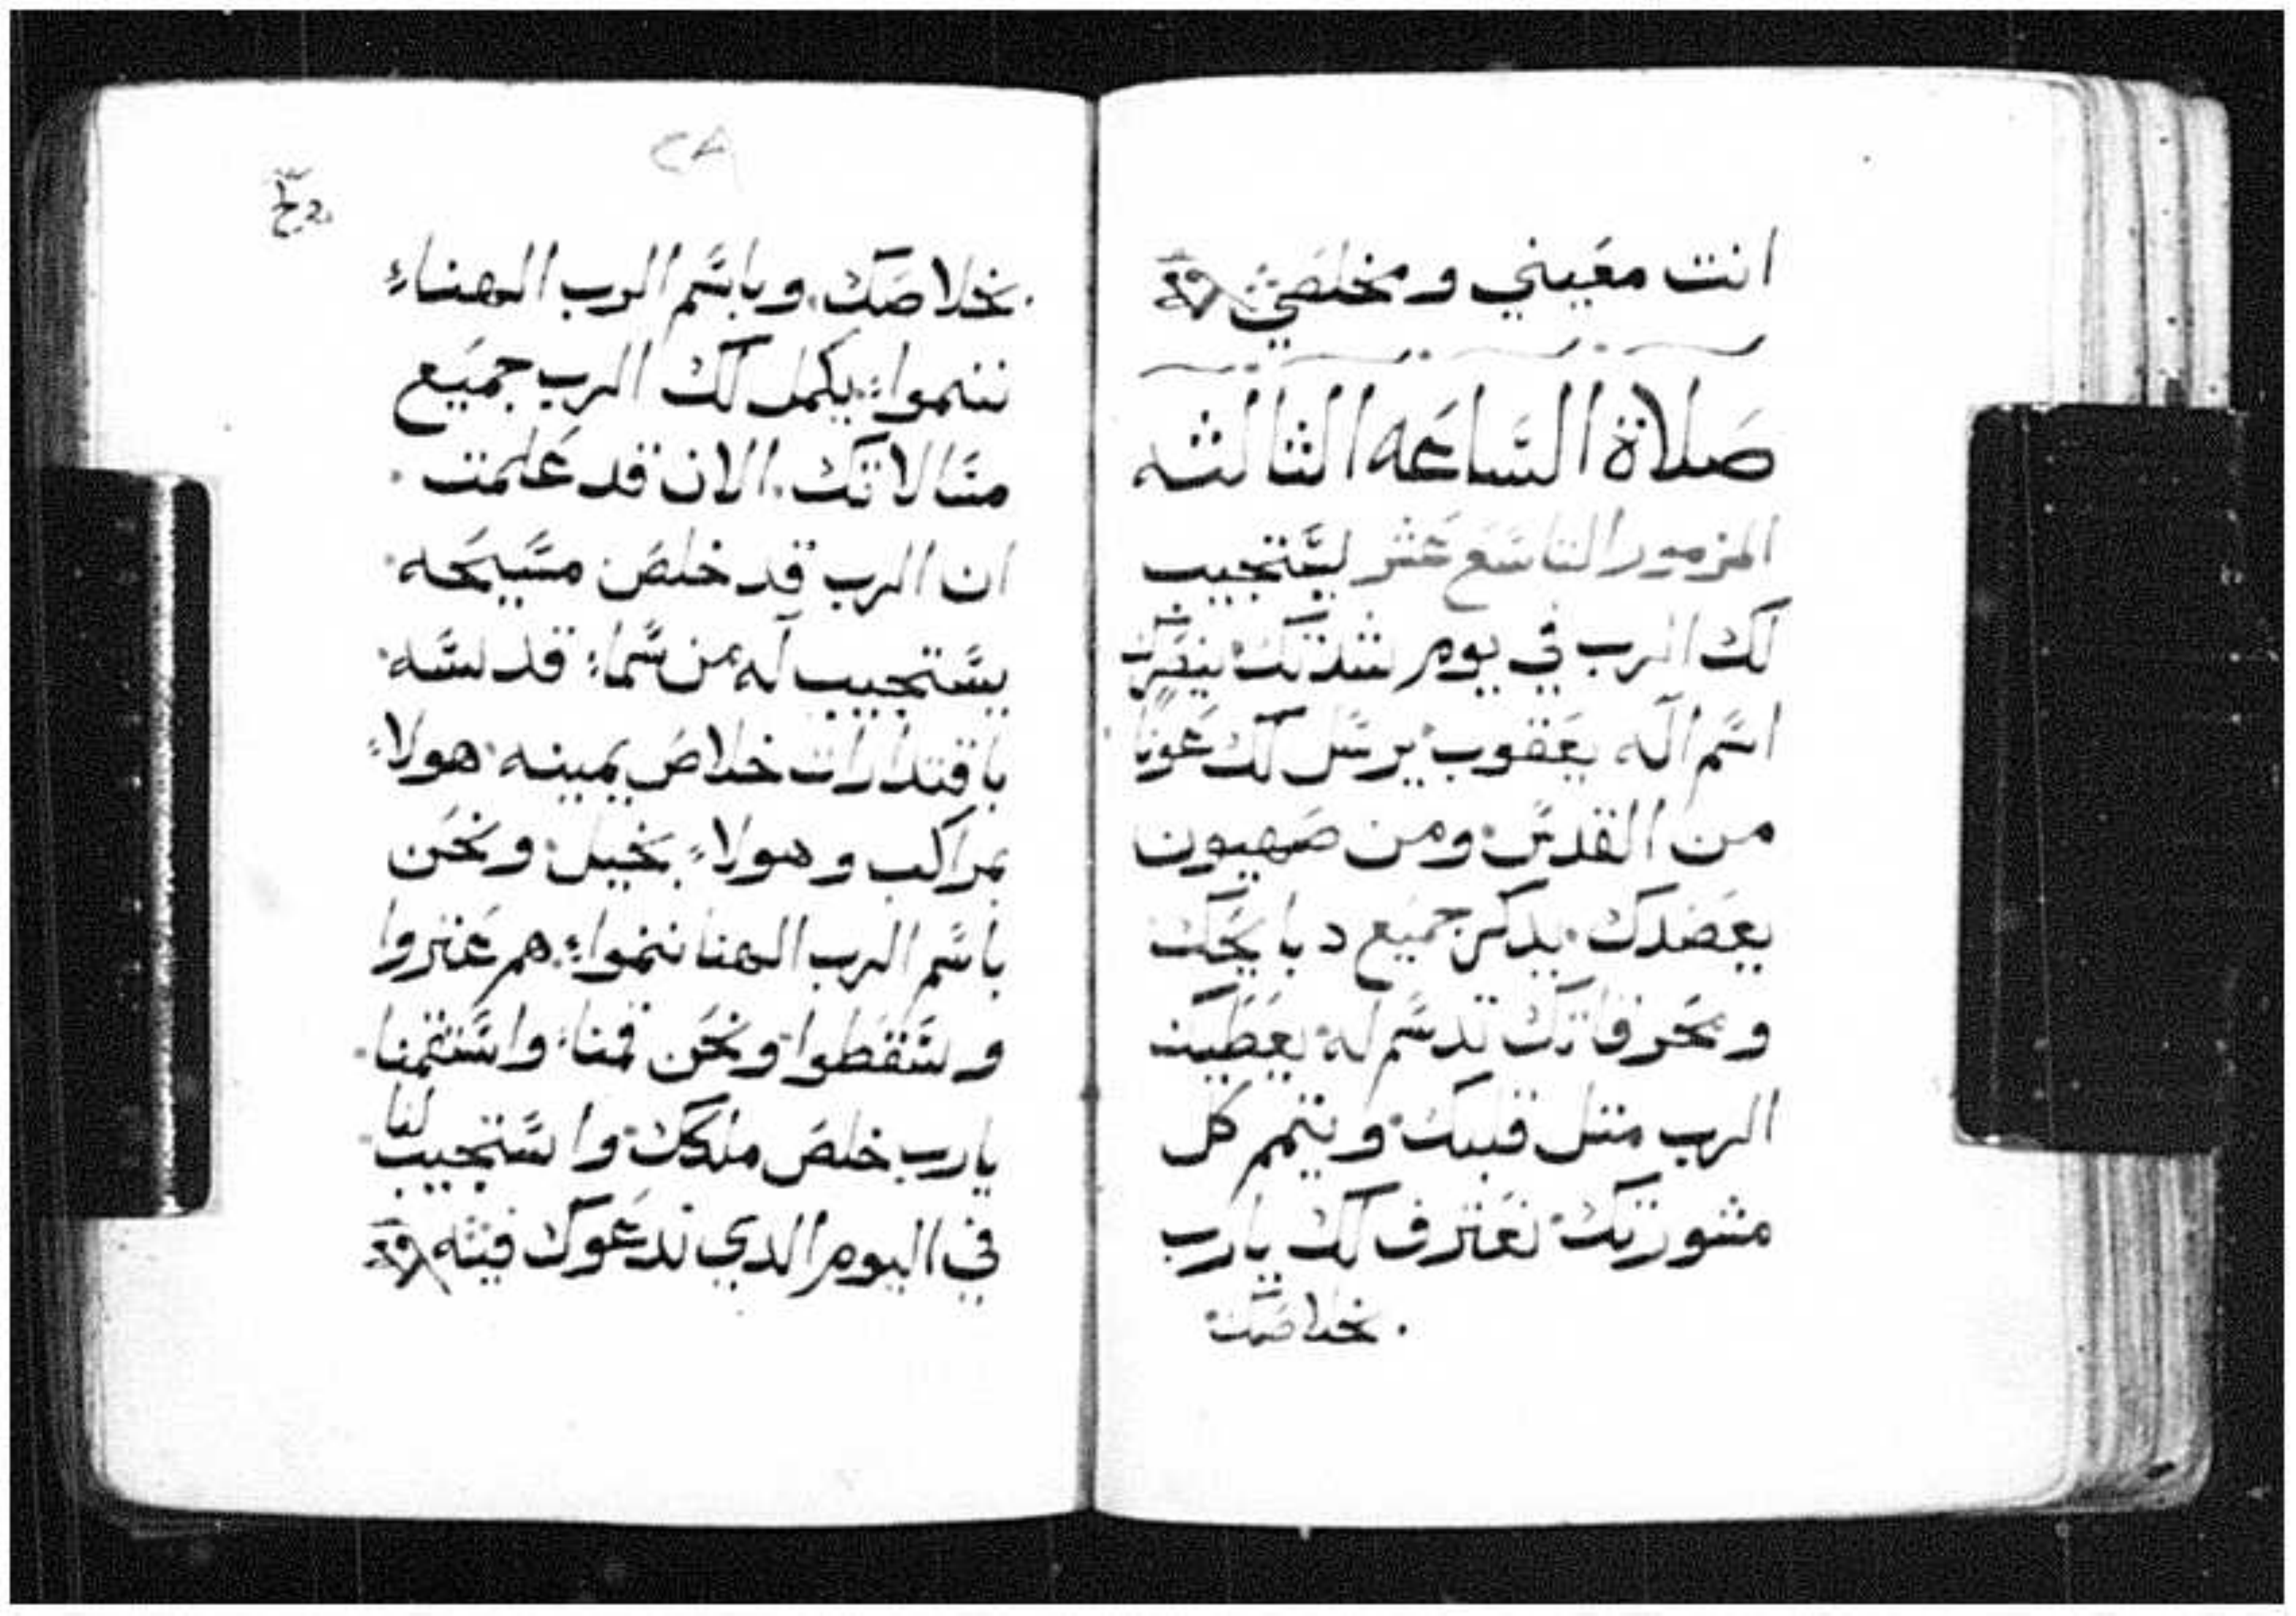 انت معيني ومخلصي
صلاة الساعه الثالثه
المزمور التاسع عشر ليستجيب
لك الرب في يوم شدتك ينصرك
اسم اله يعقوب يرسل لك عونا
من القدس ومن صهيون
يعضدك يدكر جميع دبايحك
ومحرقاتك تدسم له يعطيك
الرب متل قلبك ويتمم كل
مشورتك نعترف لك يارب
بخلاصك
٢٨
بخلاصك وباسم الرب الهناء
ننموا يكمل لك الرب جميع
مسالاتك الان قد علمت
ان الرب قد خلص مسيحه
يستجيب له من سماء قدسه
باقتدارات خلاص يمينه هولاء
بمراكب وهولاء بخيل ونحن
باسم الرب الهنا ننموا هم عتروا
وسقطوا ونحن قمنا واستقمنا
يارب خلص ملكك واستجيب لنا
في اليوم الدي ندعوك فيه